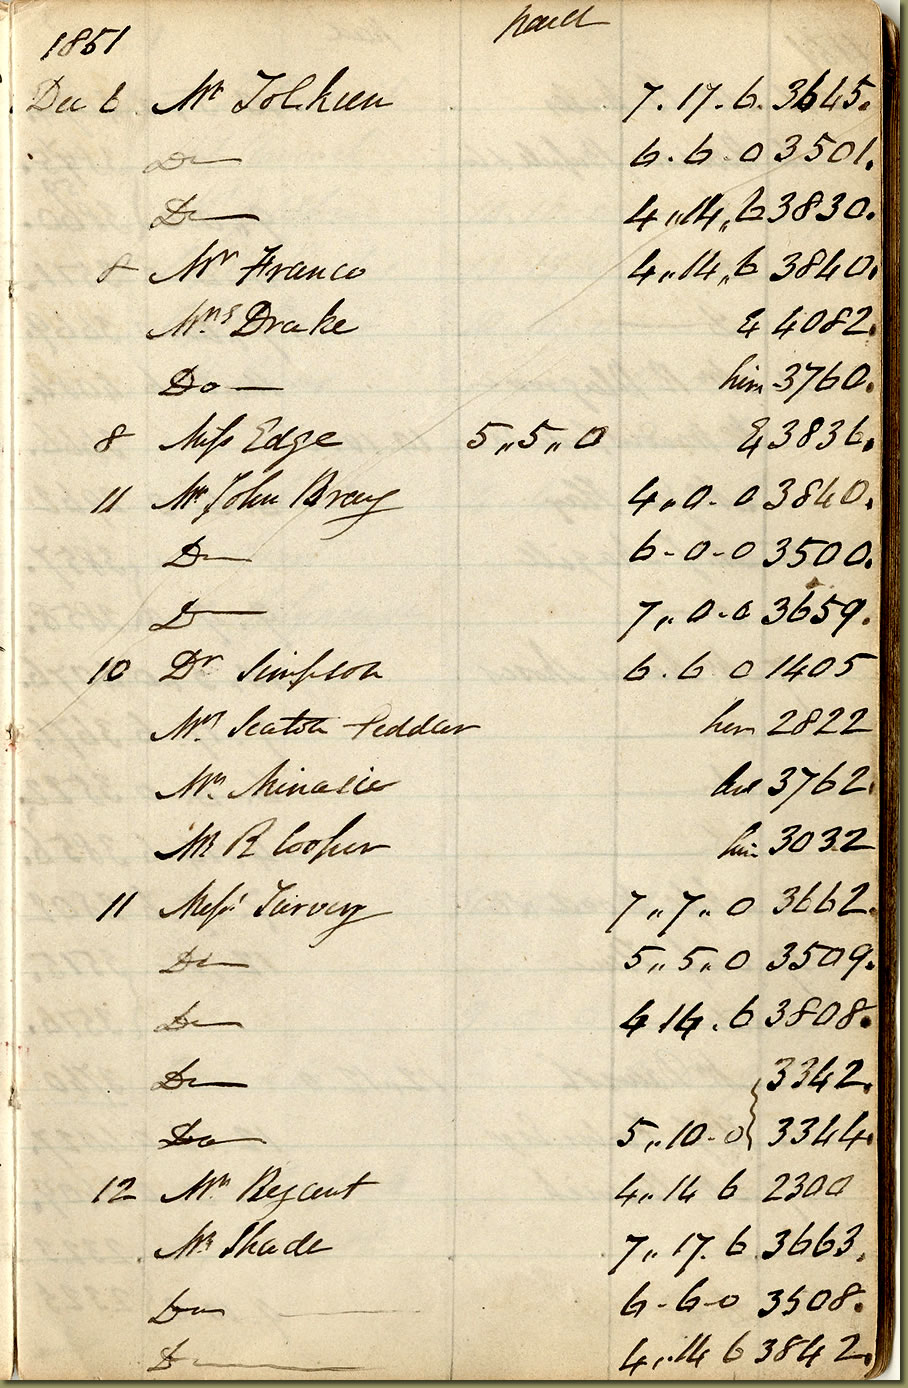 1851 paid
Dec 6 Mr Tolkien 7.17.6. 3645.
Do 6.6.0 3501.
Do 4,,14,,6 3830.
8 Mr Franco 4,,14,,6 3840.
Mrs Drake & 4082.
Do him 3760.
8 Miss Edge 5,,5,,0 & 3836.
11 Mr John Bray 4,,0-0 3840.
Do 6-0-0 3500.
Do 7,,0-0 3659.
10 Dr Simpson 6.6 0 1405
Seaton Peddler 2822
Mr Minasie 3762.
Mr R Cooper him 3032
11 Messrs Turvey 7,,7,,0 3662.
Do 5,,5,,0 3509.
Do 4 14.6 3808.
Do 3342.
Do 5,,10-0 3344.
12 Mr Regent 4,,14 6 2300
Mr Shade 7,,17.6 3663.
Do 6-6-0 3508.
Do 4,,14 6 3842.